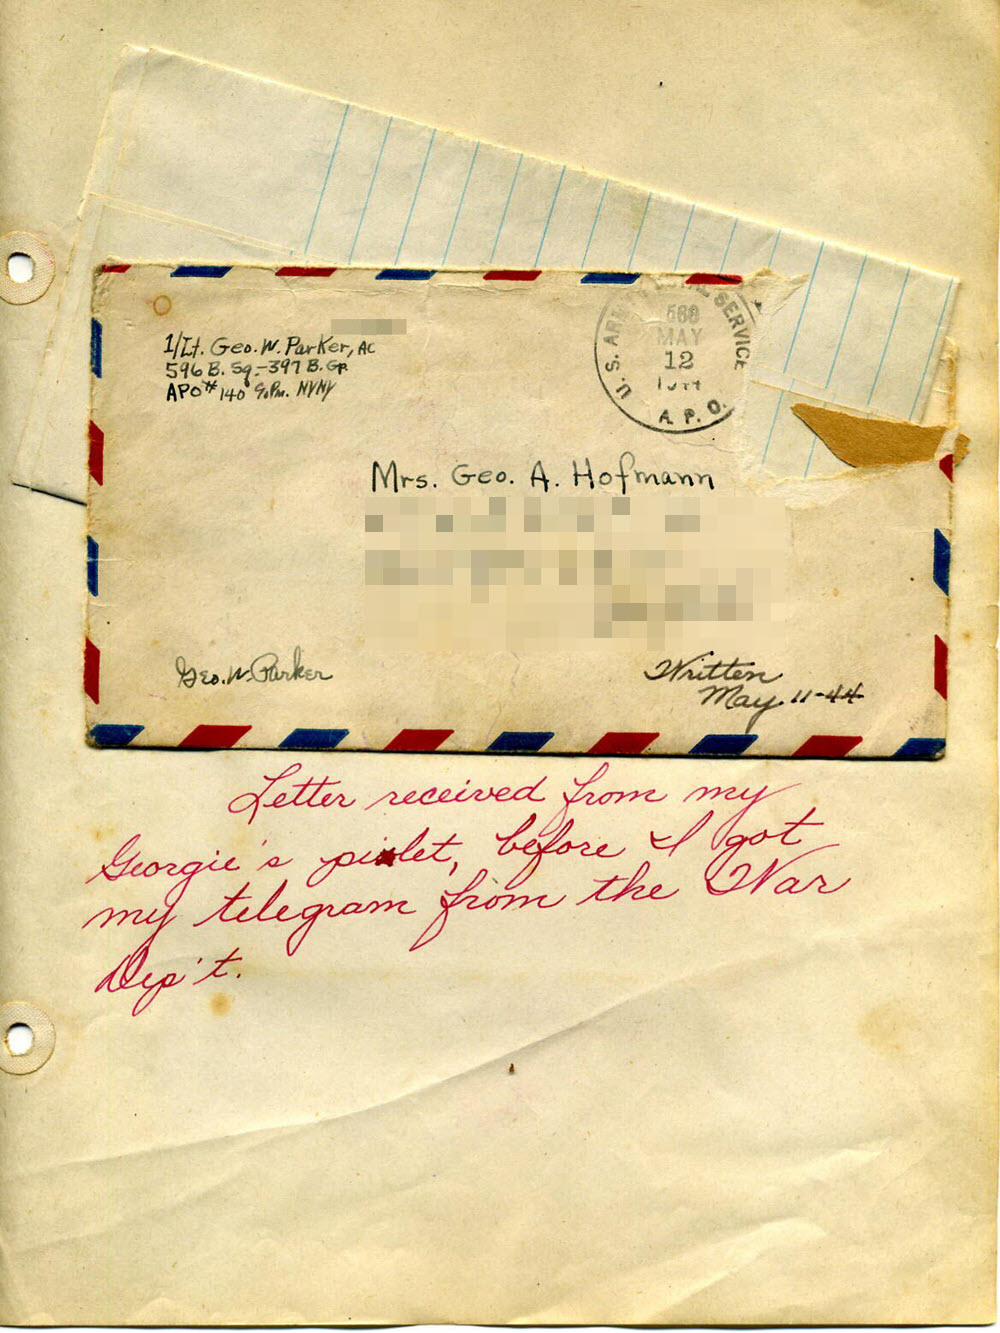 1/Lt. Geo. W. Parker, AC
596 B. Sq.-397 B. Gp.
APO# 140 % P.M. NYNY
U.S. ARMY POSTAL SERVICE
MAY
12
A.P.O.
Mrs. Geo. A. Hofmann
Geo. W. Parker
Written
May 11-44
Letter received from my
Georgie's pilet, before I got
my telegram from the War
Dep't.